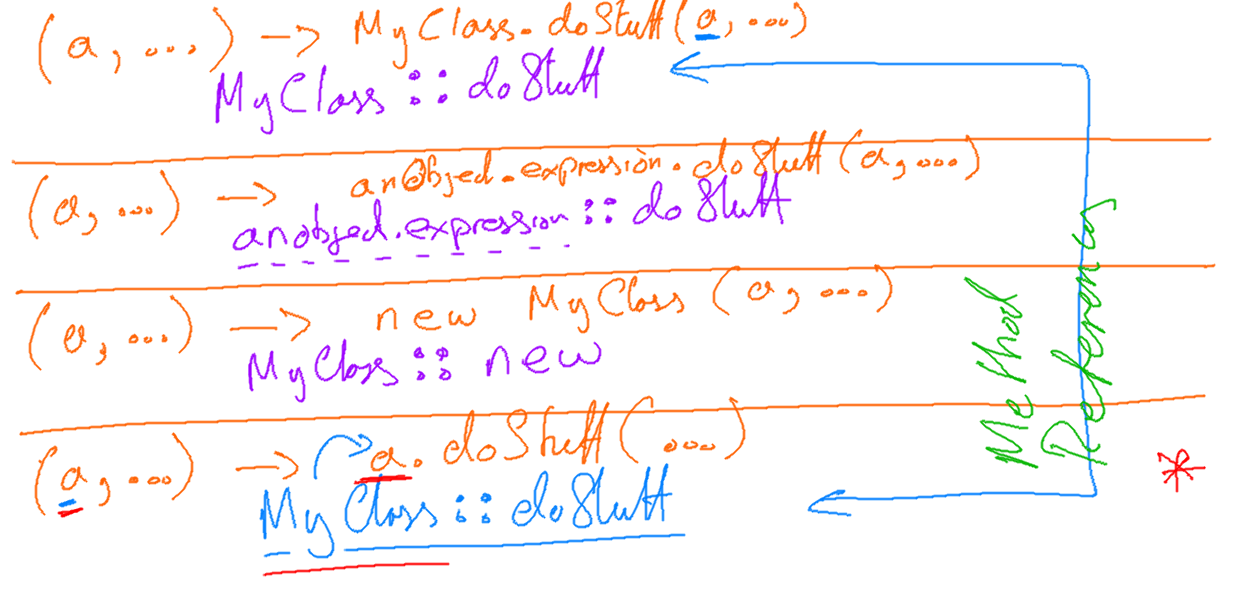 (a, ...) -> MyClass.doStuff(a, ...)
MyClass :: doStuff
(a, ...) -> anObject.expression.doStuff(a, ...)
anobject.expression :: doStuff
(a, ...) -> new MyClass (a, ...)
MyClass :: new
(a, ...) -> a.doStuff(...)
MyClass :: doStuff
Method
References
*